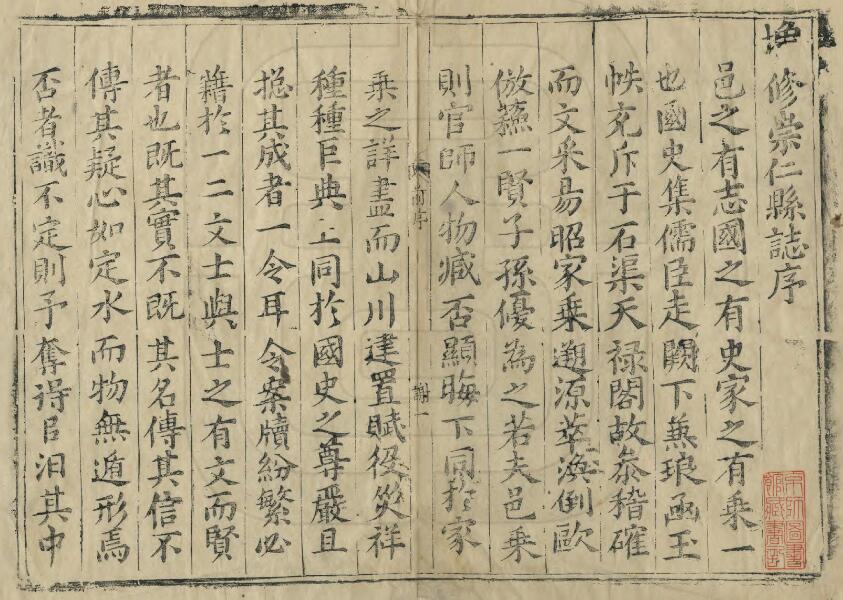 修崇仁縣誌序
邑之有志國之有史家之有乘一
也國史集儒臣走闕下蒐琅函玉
帙充斥于石渠天禄閣故叅稽確
而文采易昭家乗遡源萃渙倒歐
倣蘓一賢子孫優為之若夫邑乗
則官師人物臧否顯晦下同於家
乗之詳盡而山川建置賦役災祥
種種巨典上同於國史之尊嚴且
捴其成者一令耳令案牘紛繁必
藉於一二文士與士之有文而賢
者也既其實不既其名傳其信不
傳其疑心如定水而物無遁形焉
否者識不定則予奪得㠯汨其中